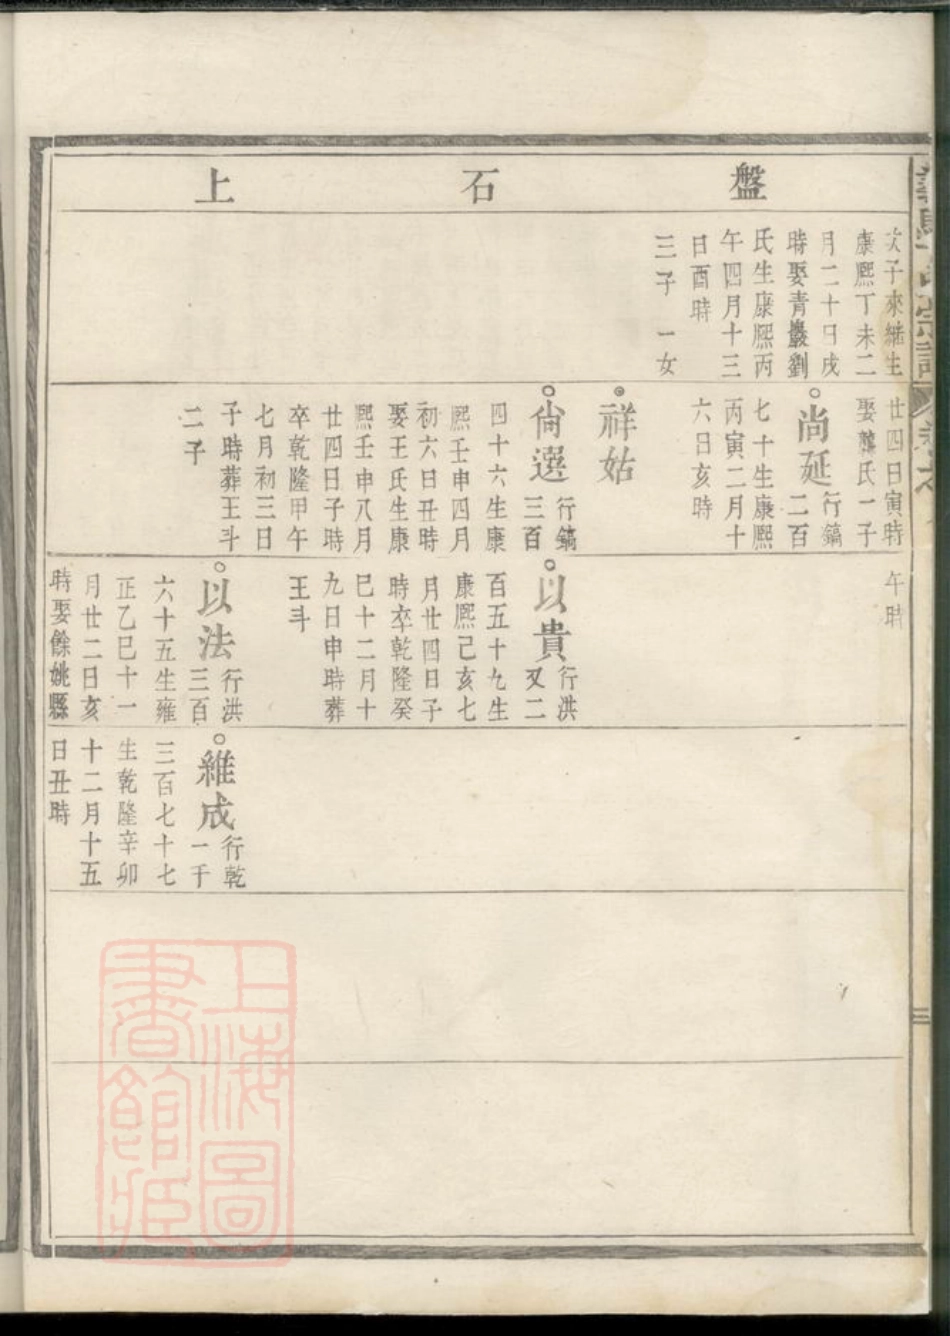 盤石上
次子來繼生
康熙丁未二
月二十日戌
時娶青巖劉
氏生康熙丙
午四月十三
日酉時
三子 一女
廿四日寅時
娶龔氏一子
尚延
行鎬
二百
七十生康熙
丙寅二月十
六日亥時
祥姑
尙選
行鎬
三百
四十六生康
熙壬申四月
初六日丑時
娶王氏生康
熙壬申八月
廿四日子時
卒乾隆甲午
七月初三日
子時葬王斗
二子
午時
以貴
行洪
又二
百五十九生
康熙己亥七
月廿四日子
時卒乾隆癸
巳十二月十
九日申時葬
王斗
以法
行洪
三百
六十五生雍
正乙巳十一
月廿二日亥
時娶餘姚縣
維成
行乾
一千
三百七十七
生乾隆辛卯
十二月十五
日丑時
三
上海圖
書館藏